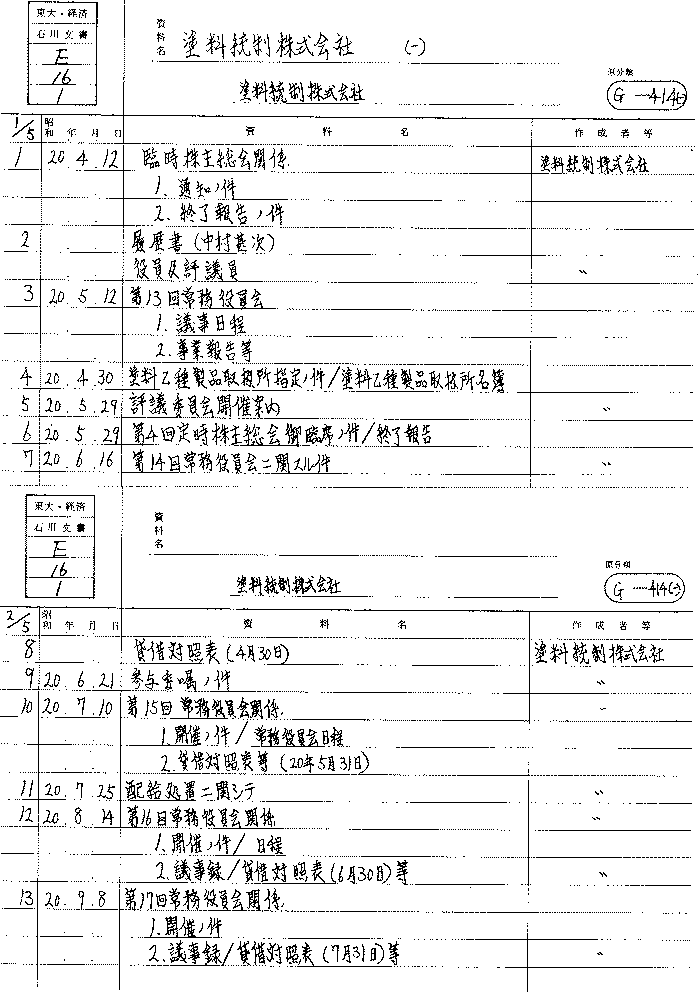 東大・経済
石川文書
E
16
1
資料名 塗料統制株式会社 (一)
塗料統制株式会社
原分類
G-414(一)
1/5 昭和 年 月 日 資料名 作成者等
1 20.4.12 臨時株主総会関係 塗料統制株式会社
1. 通知ノ件
2. 終了報告ノ件
2 履歴書(中村甚次)
役員及評議員 〃
3 20.5.12 第13回常務役員会
1. 議事日程
2. 事業報告等
4 20.4.30 塗料乙種製品取扱所指定ノ件/塗料乙種製品取扱所名簿
5 20.5.29 評議委員会開催案内 〃
6 20.5.29 第4回定時株主総会御臨席ノ件/終了報告
7 20.6.16 第14回常務役員会ニ関スル件 〃
東大・経済
石川文書
E
16
1
資料名
塗料統制株式会社
原分類
G-414(一)
2/5 昭和 年 月 日 資料名 作成者等
8 貸借対照表(4月30日) 塗料統制株式会社
9 20.6.21 参与委嘱ノ件 〃
10 20.7.10 第15回常務役員会関係 〃
1. 開催ノ件/常務役員会日程
2. 貸借対照表等(20年5月31日)
11 20.7.25 配給処置ニ関シテ 〃
12 20.8.14 第16回常務役員会関係 〃
1. 開催ノ件/日程
2. 議事録/貸借対照表(6月30日)等 〃
13 20.9.8 第17回常務役員会関係
1. 開催ノ件
2. 議事録/貸借対照表(7月31日)等 〃